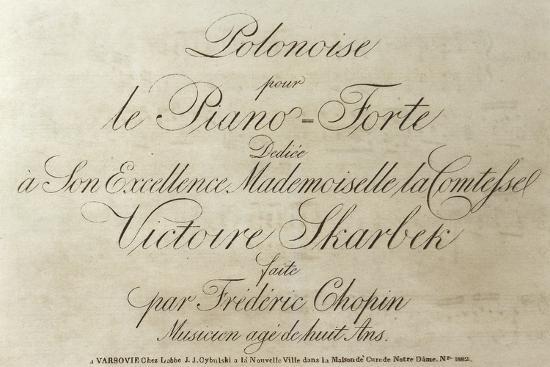 Polonoise
pour
le Piano=Forte
Dediée
à Son Excellence Mademoiselle la Comtesse
Victoire Skarbek
faite
par Frédéric Chopin
Musicien agé de huit Ans.
à VARSOVIE Chez Labbe J. J. Cybulski a là Nouvelle Ville dans la Maison de Cure de Notre Dâme. Nro 1882.